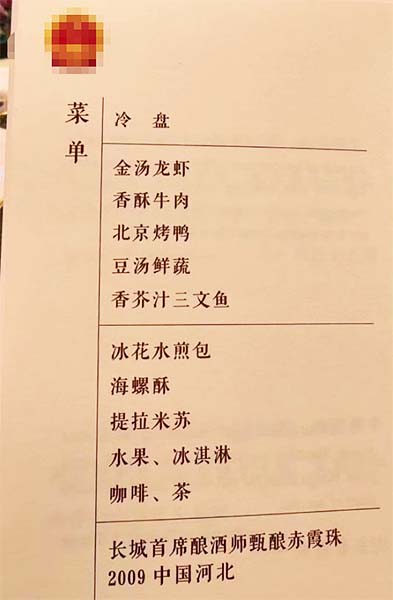 菜单
冷 盘
金汤龙虾
香酥牛肉
北京烤鸭
豆汤鲜蔬
香芥汁三文鱼
冰花水煎包
海螺酥
提拉米苏
水果、冰淇淋
咖啡、茶
长城首席酿酒师甄酿赤霞珠
2009 中国河北